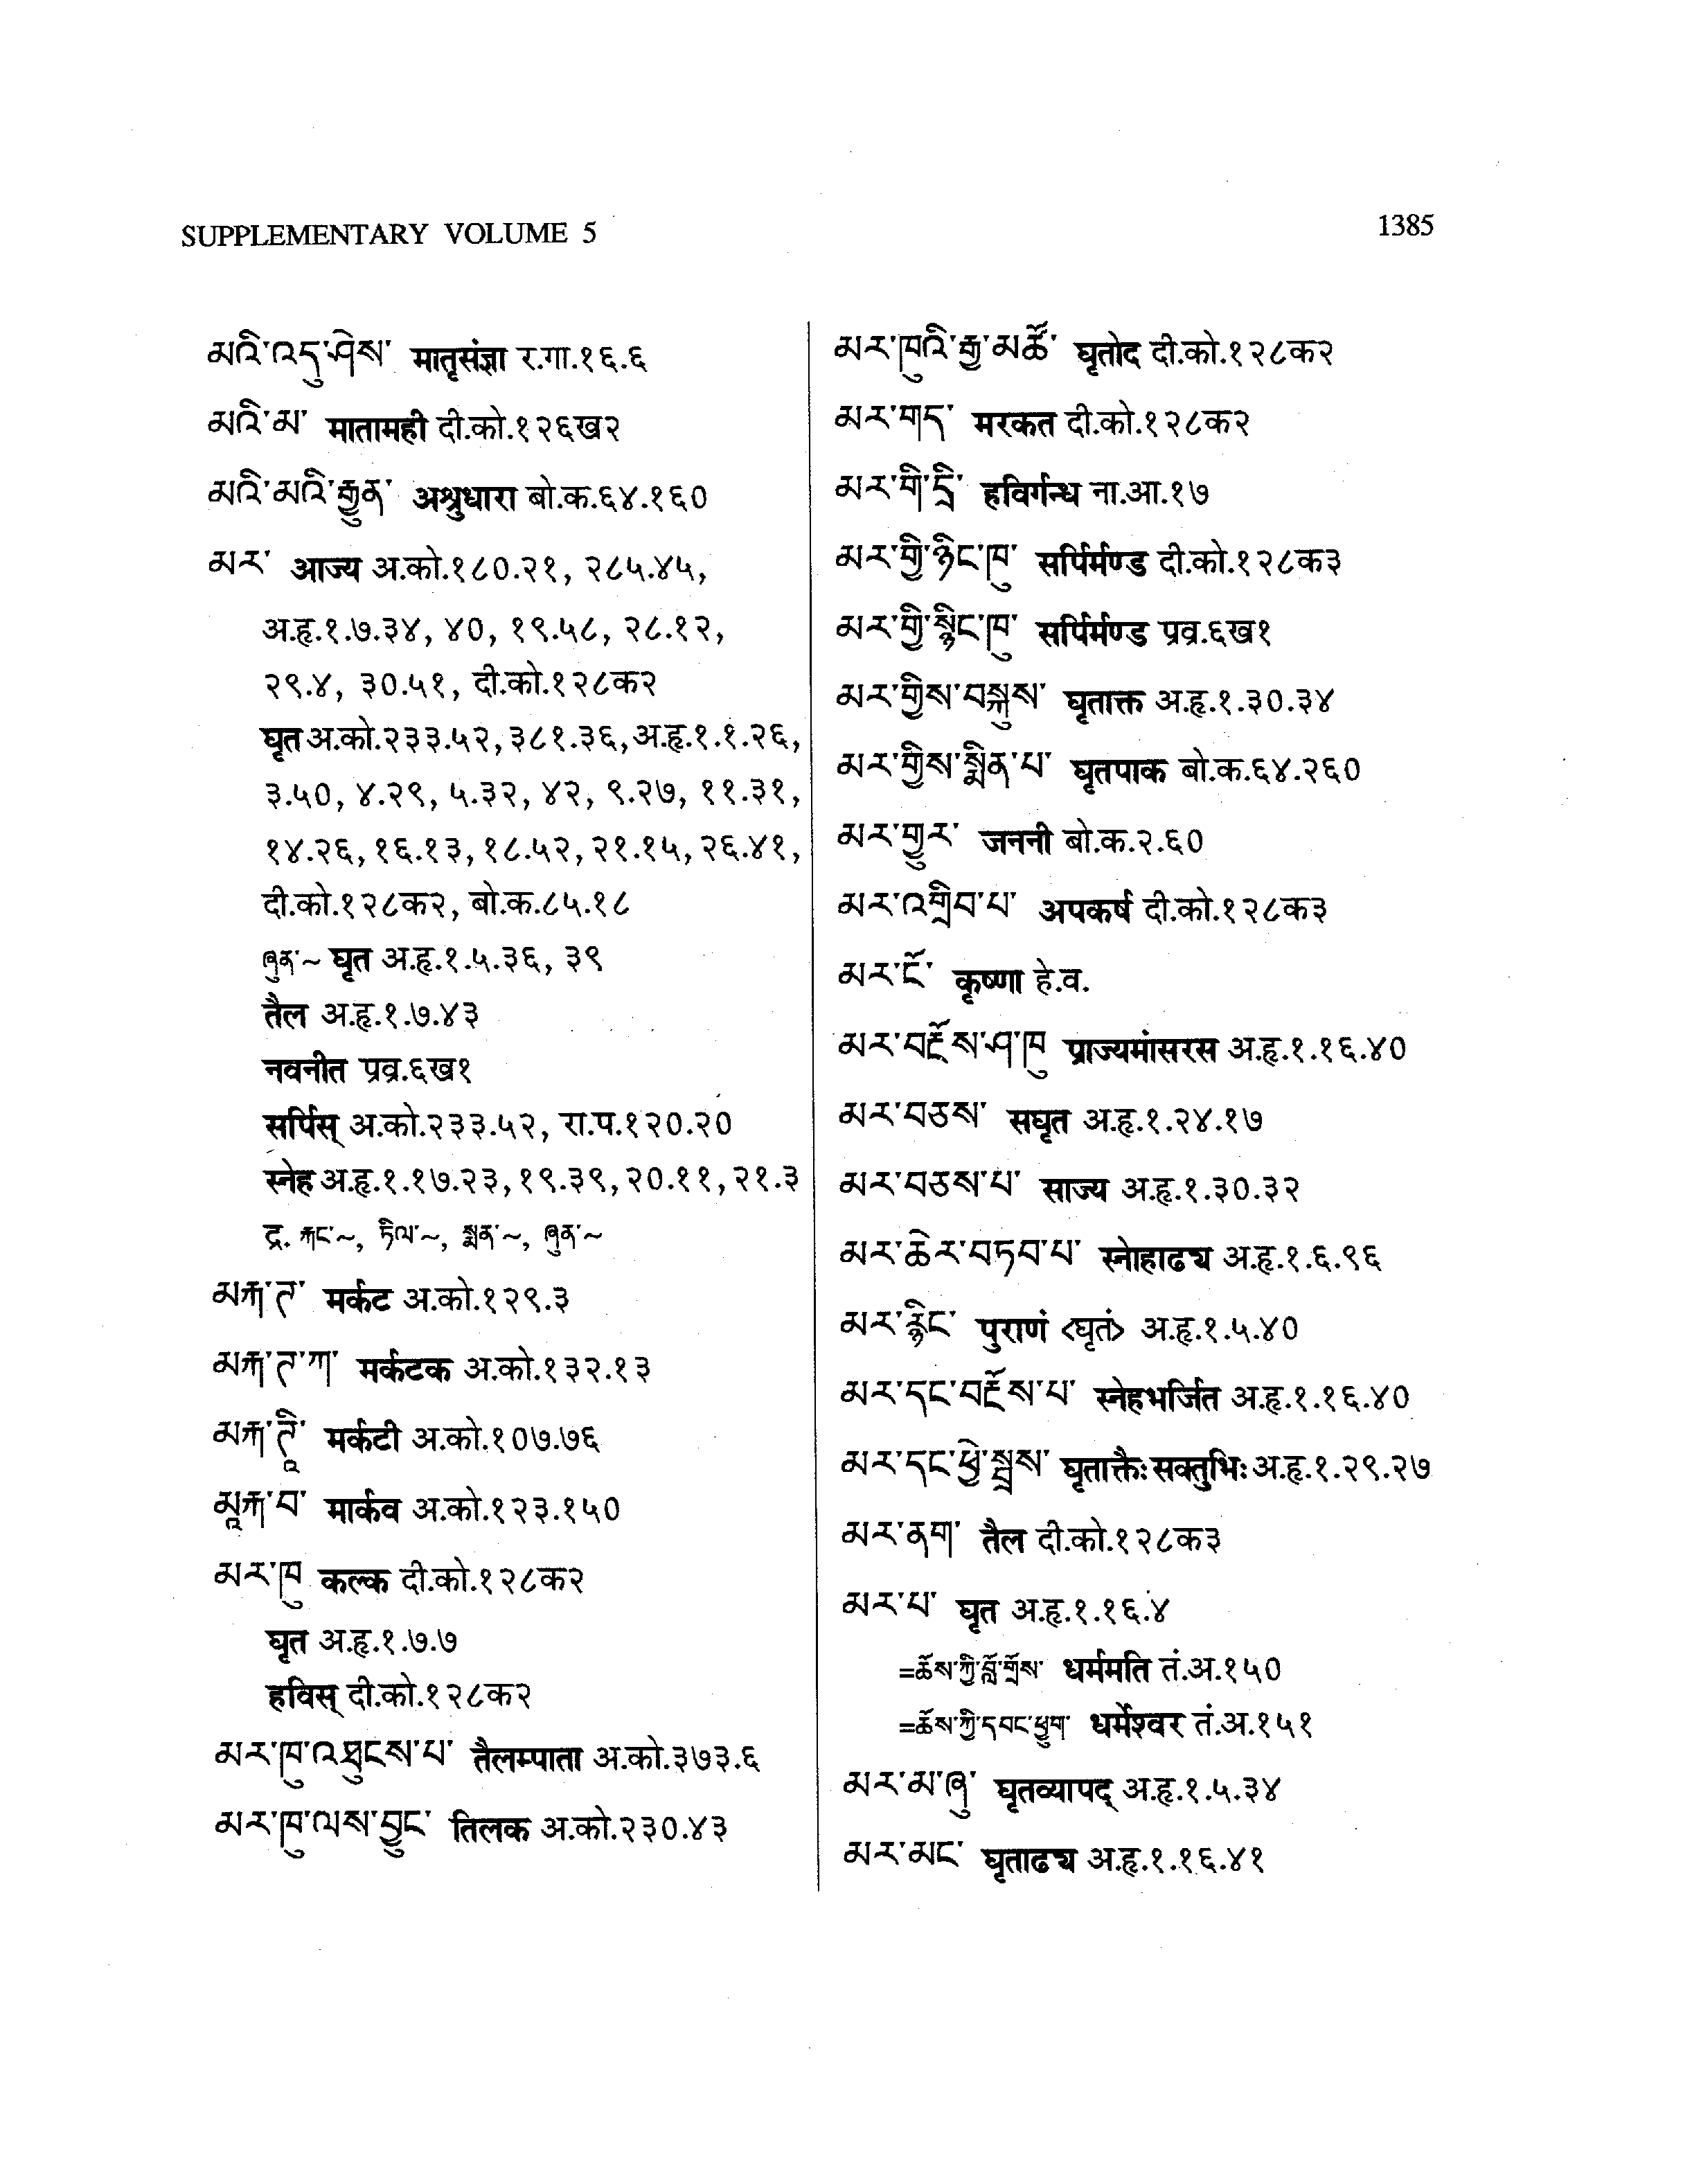 SUPPLEMENTARY VOLUME 5
1385
མའི་འདུ་ཤེས་ मातृसंज्ञा र.गा.१६.६
མའི་མ་ मातामही दी.को.१२६ख२
མའི་མའི་རྒྱུན་ अश्रुधारा बो.क.६४.१६०
མར་ आज्य अ.को.१८०.२१, २८५.४५,
अ.हृ.१.७.३४, ४०, १९.५८, २८.१२,
२९.४, ३०.५१, दी.को.१२८क२
घृत अ.को.२३३.५२, ३८१.३६, अ.हृ.१.१.२६,
३.५०, ४.२९, ५.३२, ४२, ९.२७, ११.३१,
१४.२६, १६.१३, १८.५२, २१.१५, २६.४१,
दी.को.१२८क२, बो.क.८५.१८
ཞུན་~ घृत अ.हृ.१.५.३६, ३९
तैल अ.हृ.१.७.४३
नवनीत प्रव्र.६ख१
सर्पिस् अ.को.२३३.५२, रा.प.१२०.२०
स्नेह अ.हृ.१.१७.२३, १९.३९, २०.११, २१.३
द्र. རྐང་~, ཏིལ་~, སྨན་~, ཞུན་~
མརྐ་ཊ་ मर्कट अ.को.१२९.३
མརྐ་ཊ་ཀ་ मर्कटक अ.को.१३२.१३
མརྐ་ཊཱི་ मर्कटी अ.को.१०७.७६
མཱརྐ་བ་ मार्कव अ.को.१२३.१५०
མར་ཁུ कल्क दी.को.१२८क२
घृत अ.हृ.१.७.७
हविस् दी.को.१२८क२
མར་ཁུ་འཐུངས་པ་ तैलम्पाता अ.को.३७३.६
མར་ཁུ་ལས་བྱུང་ तिलक अ.को.२३०.४३
མར་ཁུའི་རྒྱ་མཚོ་ घृतोद दी.को.१२८क२
མར་གད་ मरकत दी.को.१२८क२
མར་གི་དྲི་ हविर्गन्ध ना.आ.१७
མར་གྱི་ཉིང་ཁུ་ सर्पिर्मण्ड दी.को.१२८क३
མར་གྱི་སྙིང་ཁུ་ सर्पिर्मण्ड प्रव्र.६ख१
མར་གྱིས་བསྐུས་ घृताक्त अ.हृ.१.३०.३४
མར་གྱིས་སྨིན་པ་ घृतपाक बो.क.६४.२६०
མར་གྱུར་ जननी बो.क.२.६०
མར་འགྲིབ་པ་ अपकर्ष दी.को.१२८क३
མར་ངོ་ कृष्णा हे.व.
མར་བརྔོས་ཤ་ཁུ प्राज्यमांसरस अ.हृ.१.१६.४०
མར་བཅས་ सघृत अ.हृ.१.२४.१७
མར་བཅས་པ་ साज्य अ.हृ.१.३०.३२
མར་ཆེར་བཏབ་པ་ स्नोहाढ्य अ.हृ.१.६.९६
མར་རྙིང་ पुराणं <घृतं> अ.हृ.१.५.४०
མར་དང་བརྔོས་པ་ स्नेहभर्जित अ.हृ.१.१६.४०
མར་དང་ཕྱེ་སྦྲས་ घृताक्तैः सक्तुभिः अ.हृ.१.२९.२७
མར་ནག་ तैल दी.को.१२८क३
མར་པ་ घृत अ.हृ.१.१६.४
=ཆོས་ཀྱི་བློ་གྲོས་ धर्ममति तं.अ.१५०
=ཆོས་ཀྱི་དབང་ཕྱུག་ धर्मेश्वर तं.अ.१५१
མར་མ་ཞུ་ घृतव्यापद् अ.हृ.१.५.३४
མར་མང་ घृताढ्य अ.हृ.१.१६.४१